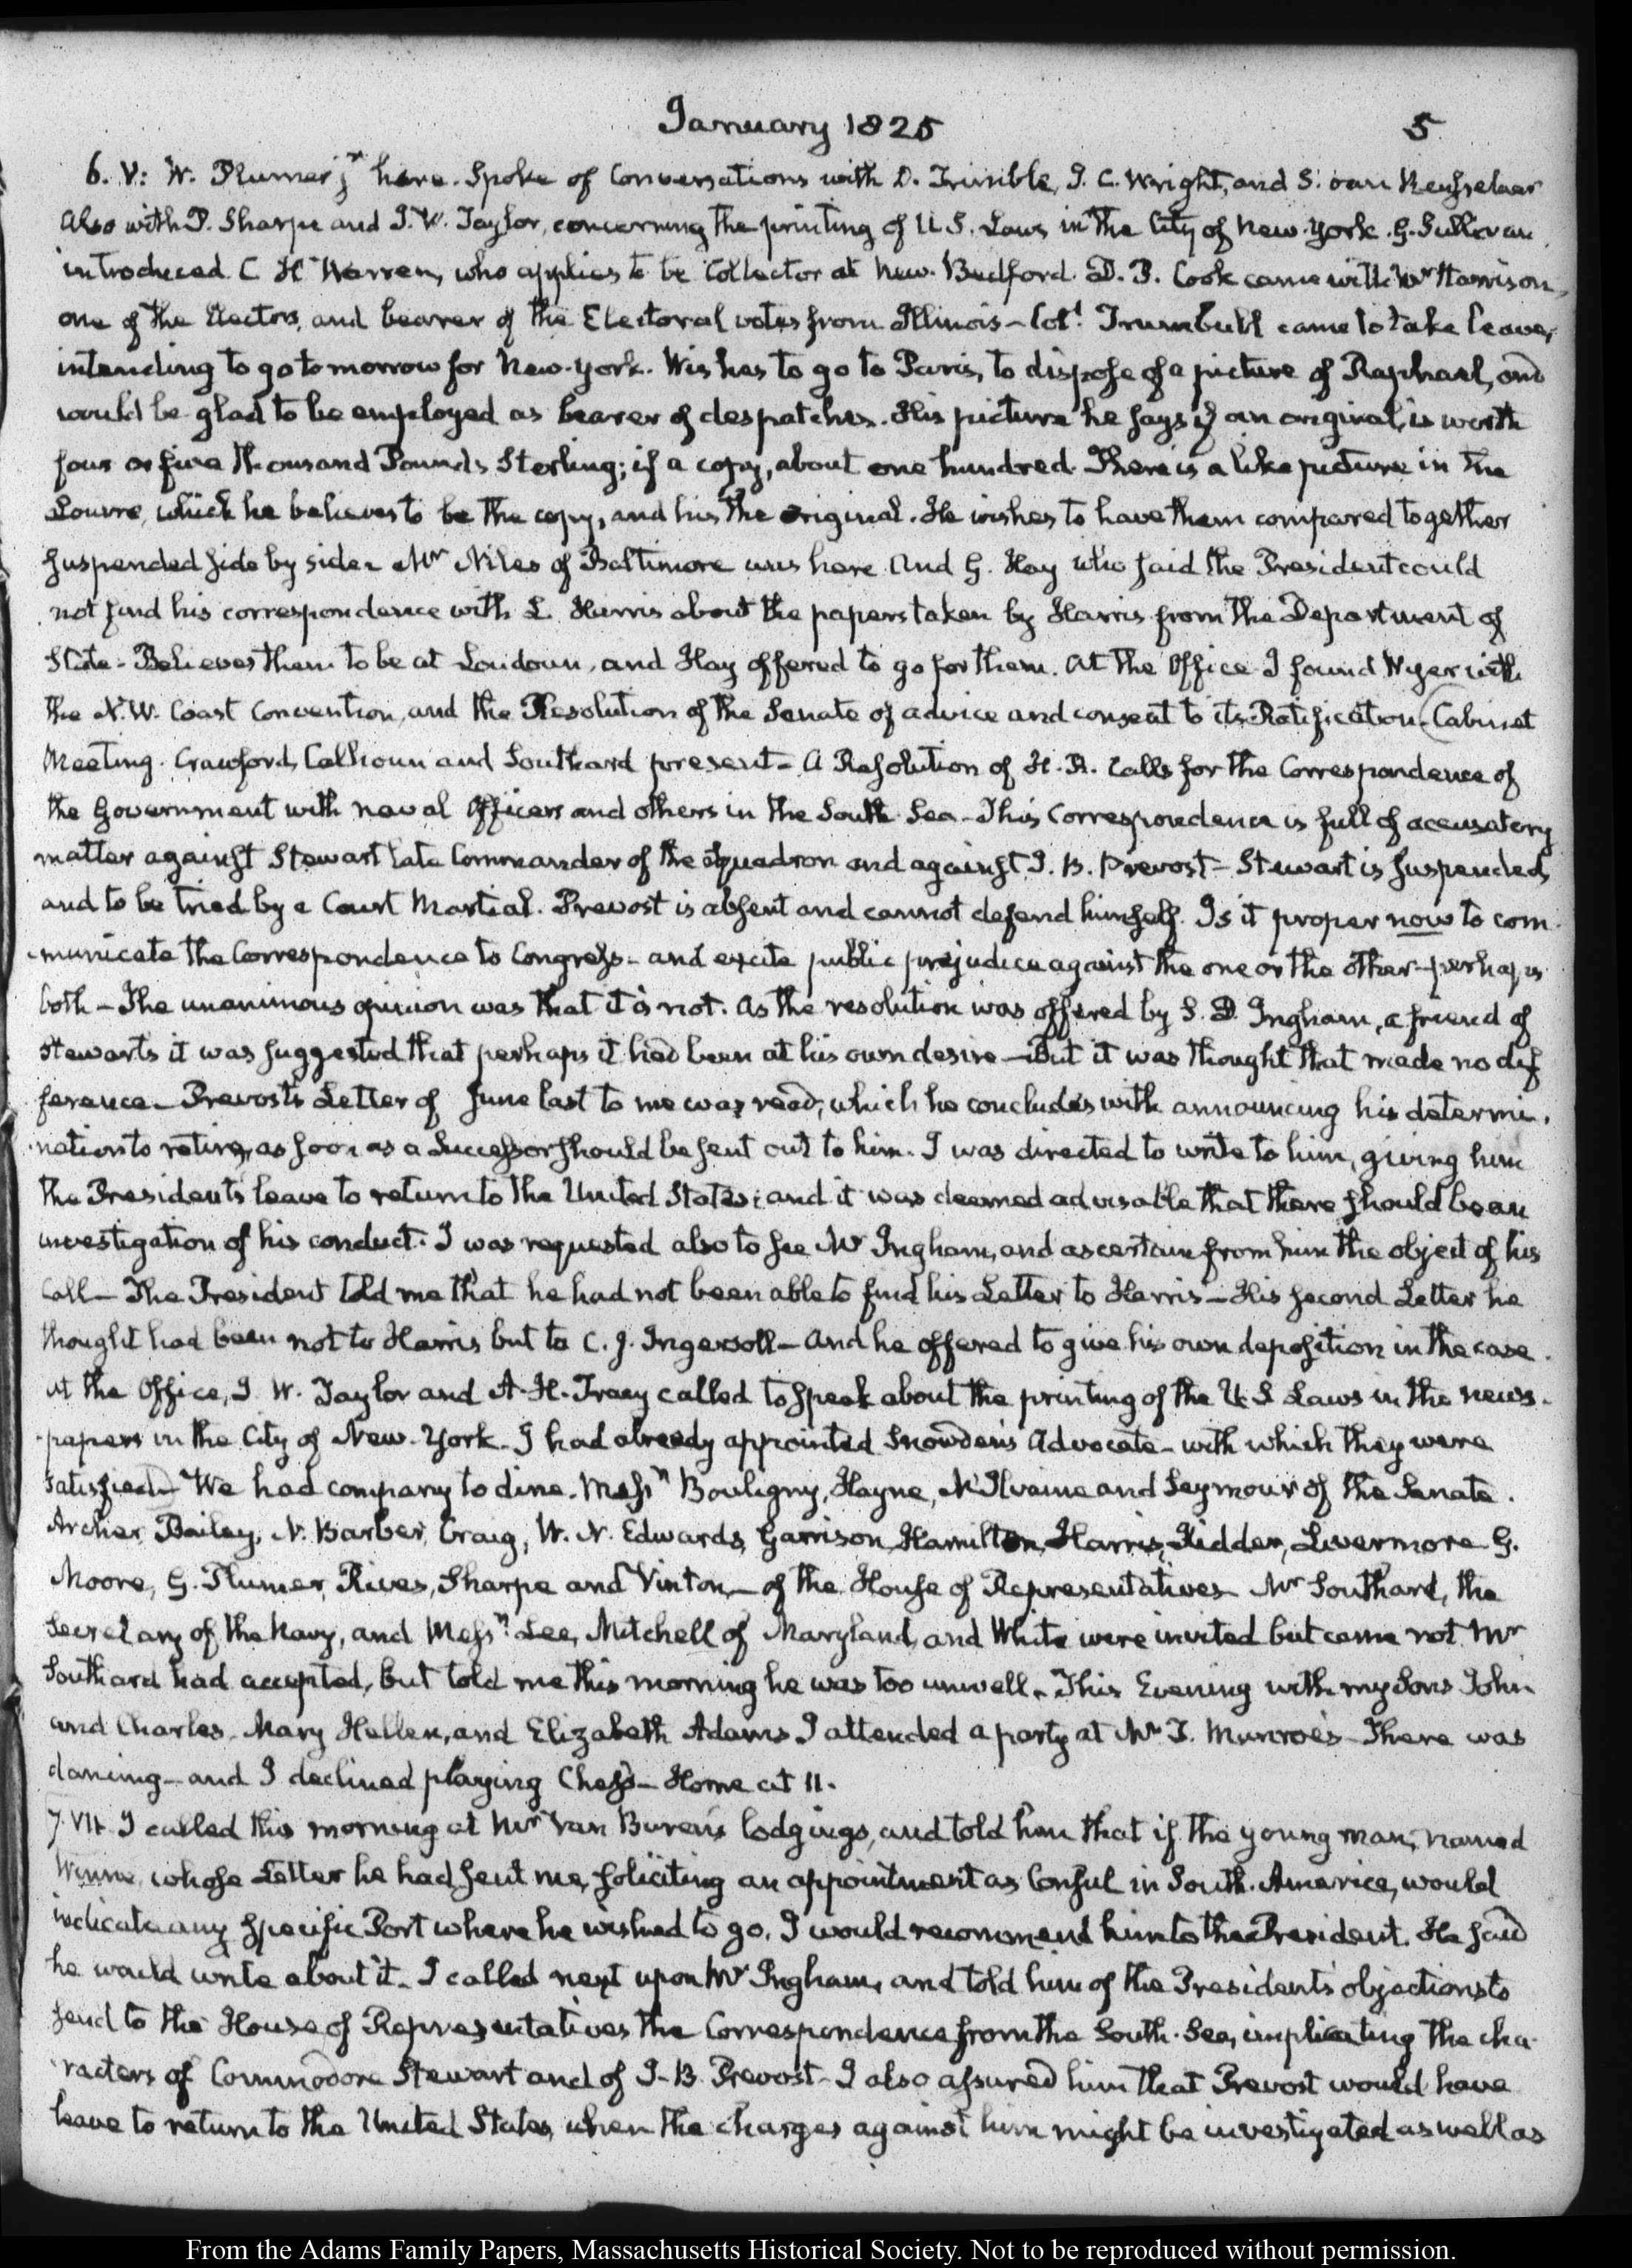 January 1825 5
6. V: W. Plumer jr here. Spoke of Conversations with D. Trimble, J. C. Wright, and S. van Rensselaer
Also with P. Sharpe and J. W. Taylor, concerning the printing of U.S. Laws in the City of New-York. G. Sullivan
introduced C H Warren, who applies to be Collector at New-Bedford. D. P. Cook came with Mr Harrison,
one of the Electors, and bearer of the Electoral votes from Illinois – Coll Trumbull came to take leave,
intending to go tomorrow for New-York. Wishes to go to Paris, to dispose of a picture of Raphael, and
would be glad to be employed as bearer of despatches. His picture he says if an original, is worth
four or five thousand Pounds Sterling; if a copy, about one hundred. There is a like picture in the
Louvre, which he believes to be the copy, and his the original. He wishes to have them compared together
suspended side by side. Mr Niles of Baltimore was here. And G. Hay who said the President could
not find his correspondence with L. Harris about the papers taken by Harris from the Department of
State. Believes them to be at Loudoun, and Hay offered to go for them. At the Office I found Nyer with
the N.W. Coast Convention, and the Resolution of the Senate of advice and consent to its Ratification. (Cabinet
Meeting. Crawford, Calhoun and Southard present – A Resolution of H. R. calls for the Correspondence of
the Government with naval Officers and others in the South Sea – This Correspondence is full of accusatory
matter against Stewart late Commander of the Squadron and against J. B. Prevost – Stewart is suspended,
and to be tried by a Court Martial. Prevost is absent and cannot defend himself. Is it proper now to com-
-municate the Correspondence to Congress – and excite public prejudice against the one or the other – perhaps
both – The unanimous opinion was that it is not. As the resolution was offered by S. D. Ingham, a friend of
Stewarts it was suggested that perhaps it had been at his own desire – But it was thought that made no dif
ference – Prevost's Letter of June last to me was read, which he concludes with announcing his determi-
-nation to retire, as soon as a Successor should be sent out to him. I was directed to write to him, giving him
the President's leave to return to the United States; and it was deemed advisable that there should be an
investigation of his conduct. I was requested also to see Mr Ingham, and ascertain from him the object of his
Call – The President told me that he had not been able to find his Letter to Harris – His second Letter he
thought had been not to Harris but to C. J. Ingersoll – And he offered to give his own deposition in the case.
At the Office, J. W. Taylor and A. H. Tracy called to speak about the printing of the U.S Laws in the news-
-papers in the City of New-York. I had already appointed Snowden's Advocate – with which they were
satisfied –) We had company to dine. Messrs Bouligny, Hayne, McIlvaine and Seymour of the Senate.
Archer, Bailey, N. Barber, Craig, W. N. Edwards, Garrison, Hamilton, Harris, Kidder, Livermore G.
Moore, G. Plumer, Rives, Sharpe and Vinton – of the House of Representatives. Mr Southard, the
Secretary of the Navy, and Messrs Lee, Mitchell of Maryland, and White were invited but came not. Mr
Southard had accepted, but told me this morning he was too unwell. This Evening with my Sons John
and Charles, Mary Hellen, and Elizabeth Adams I attended a party at Mr T. Munroe's – There was
dancing – and I declined playing Chess – Home at 11.
7. VII. I called this morning at Mr Van Buren's lodgings, and told him that if the young man, named
Winne, whose Letter he had sent me, soliciting an appointment as Consul in South-America, would
indicate any specific Port where he wished to go, I would recommend him to the President. He said
he would write about it. I called next upon Mr Ingham, and told him of the President's objections to
send to the House of Representatives the Correspondence from the South-Sea, implicating the cha-
racters of Commodore Stewart and of J. B. Prevost – I also assured him that Prevost would have
leave to return to the United States, when the charges against him might be investigated as well as
From the Adams Family Papers, Massachusetts Historical Society. Not to be reproduced without permission.